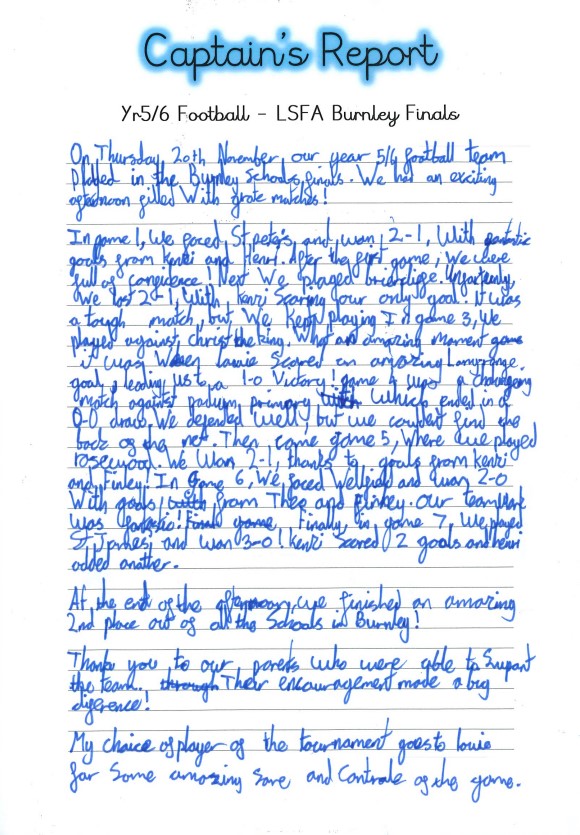 Captain's Report
Yr5/6 Football - LSFA Burnley Finals
On Thursday, 20th November, our year 5/6 football team
in the Burnley Schools finals. We had an exciting
afternoon filled With grate matches!
In game 1, We faced St peter's, and won 2-1, With
goals from Kenzi and Henri. After the first game, we were
full of confidence! Next We played
We lost 2-1, With Kenzi Scoring our only goal. It was
a tough match, but We kept playing! In game 3, We
played against christ the king. What an amazing moment game
it was When louie Scored an amazing long range
goal, leading us to a 1-0 Victory! game 4 was a challenging
match against padium primary with Which ended in a
0-0 draw. We defended Well, but we couldent find the
back of the net. Then came game 5, Where we played
rosewood. We Won 2-1, thanks to goals from Kenzi
and Finley! In Game 6, We faced Wellfield and won 2-0
With goals with from Theo and Finley. Our teamwork
was fantastic! Final game, Finally in game 7, We played
St and won 3-0! Kenzi Scored 2 goals and henri
added another.
At the end of the afternoon, we finished an amazing
2nd place out of all the Schools in Burnley!
Thank you to our parents who were able to Support
the team. through Their encouragement made a big
diference!
My choice of player of the tournament goes to louie
for Some amazing Save and Controle of the game.